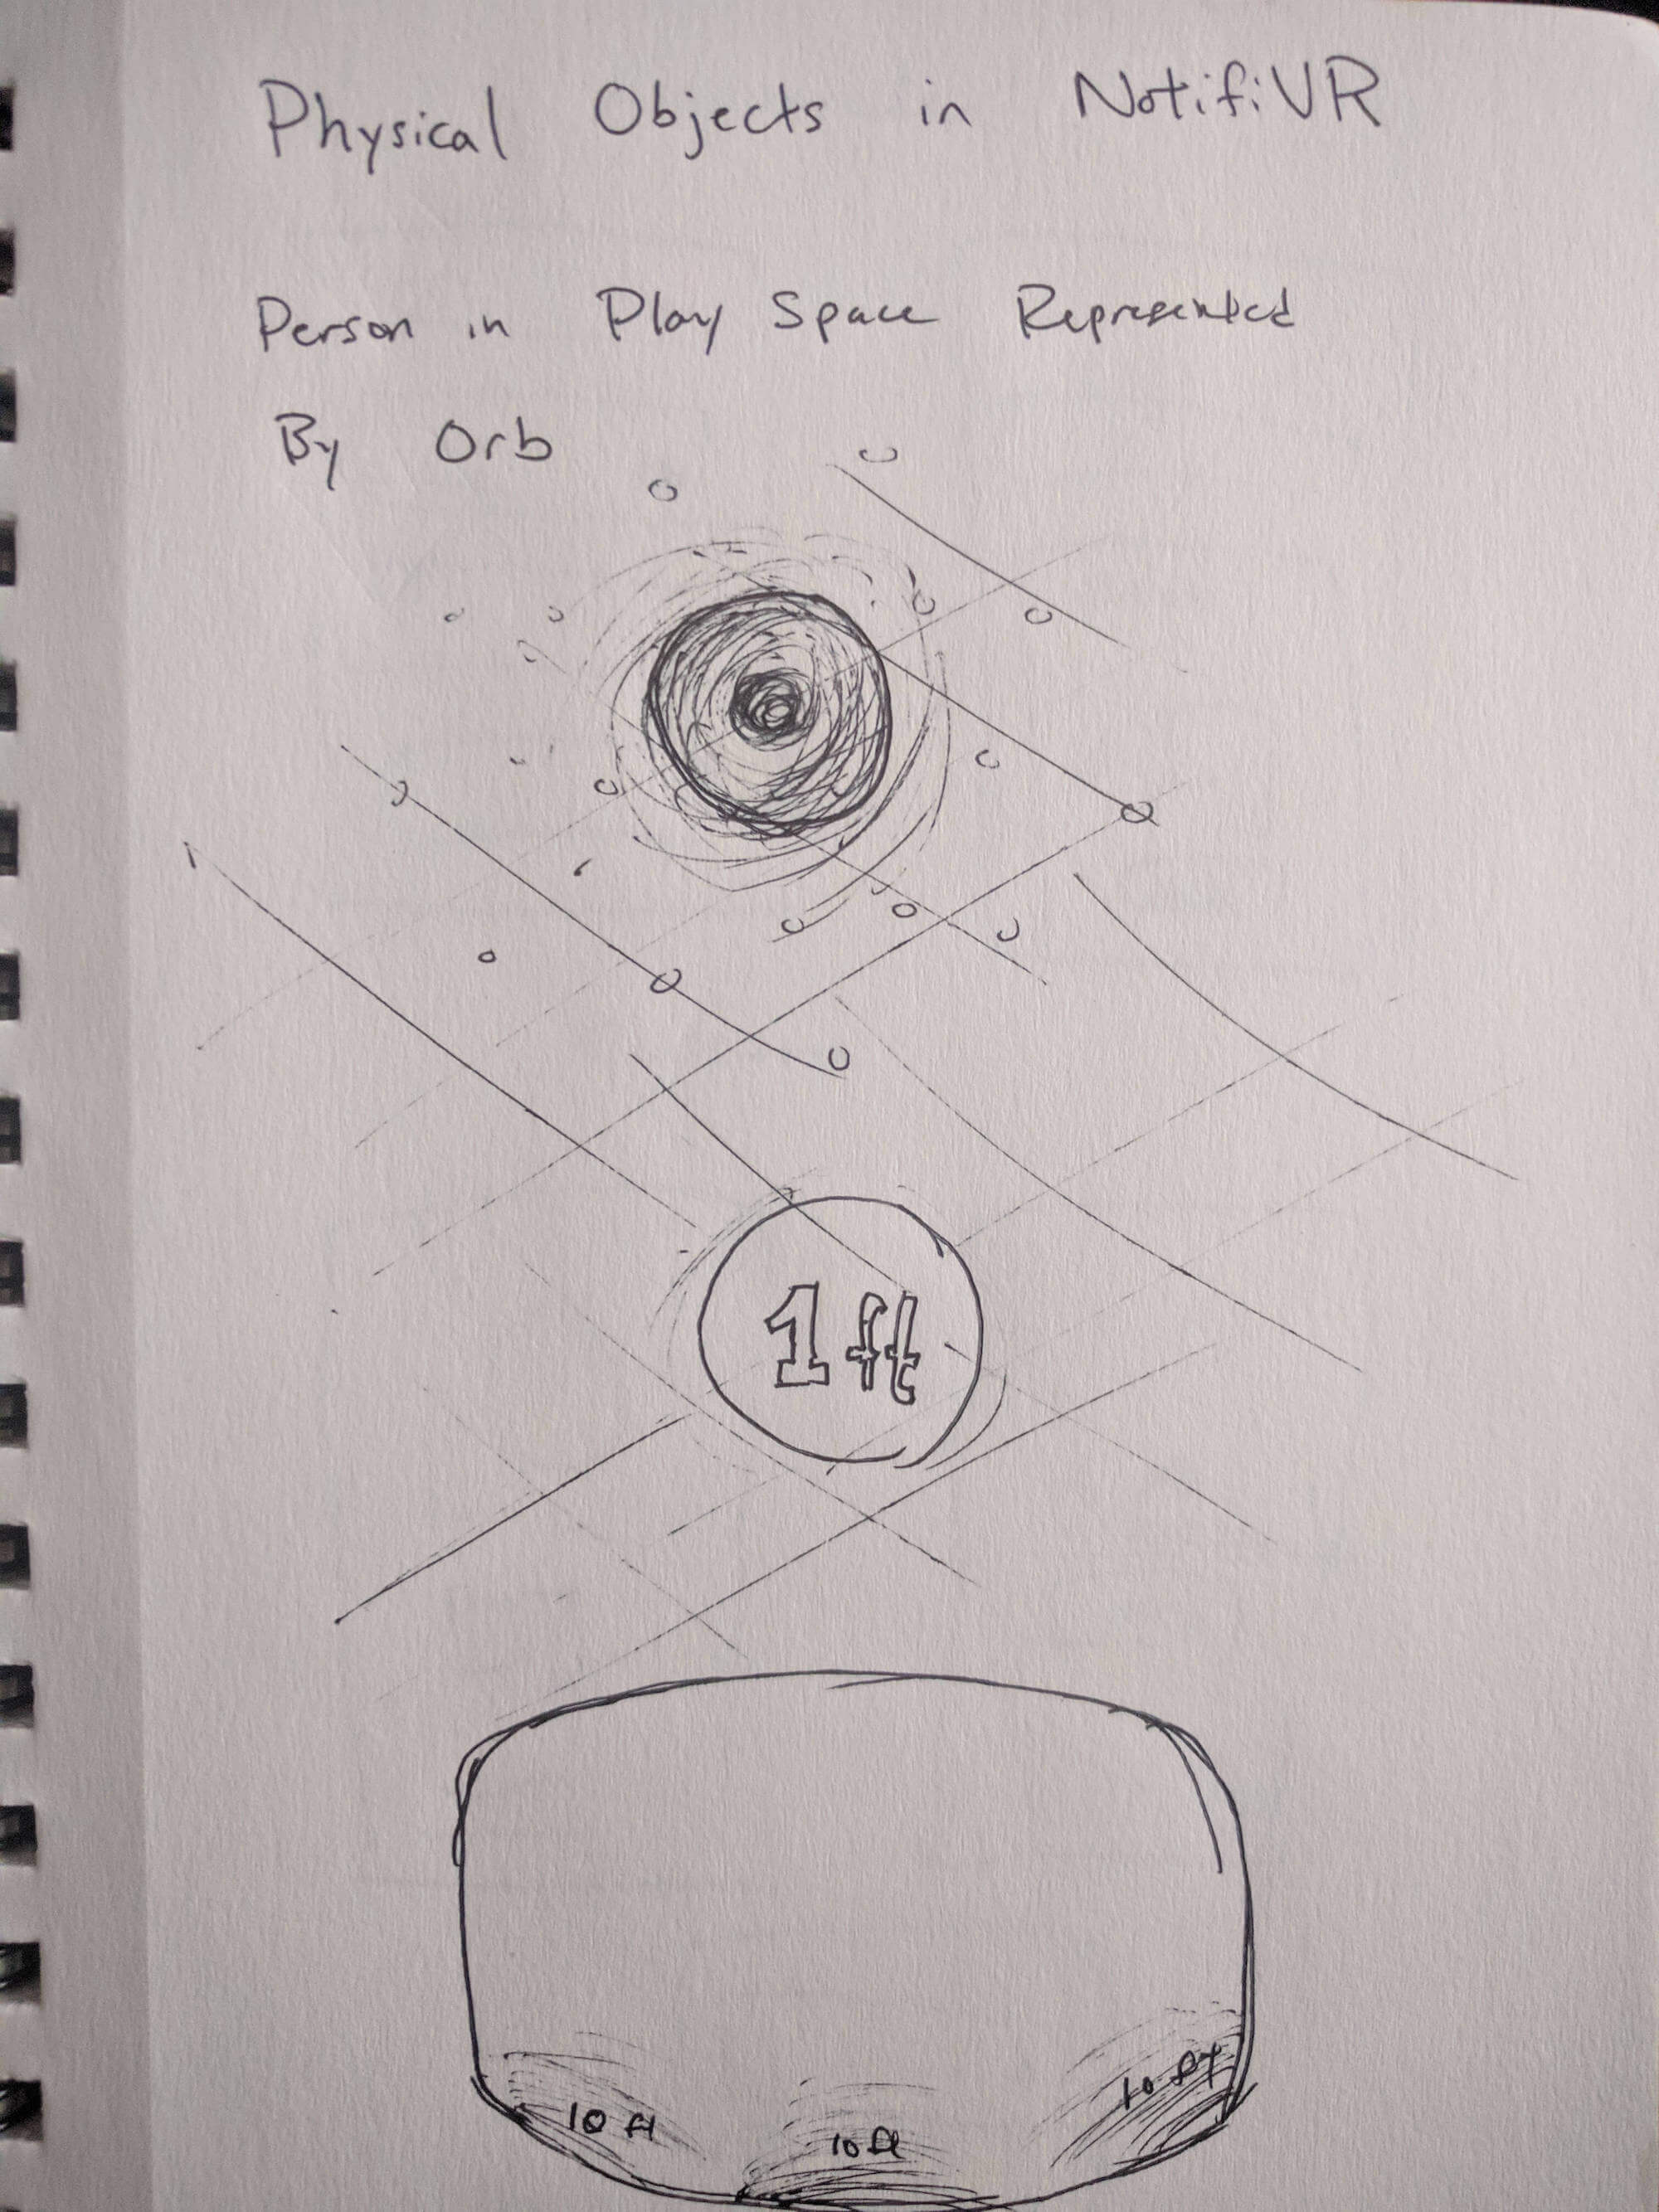 Physical Objects in NotifiVR
Person in Play Space Represented
By Orb
1 ft
10 ft
10 ft
10 ft